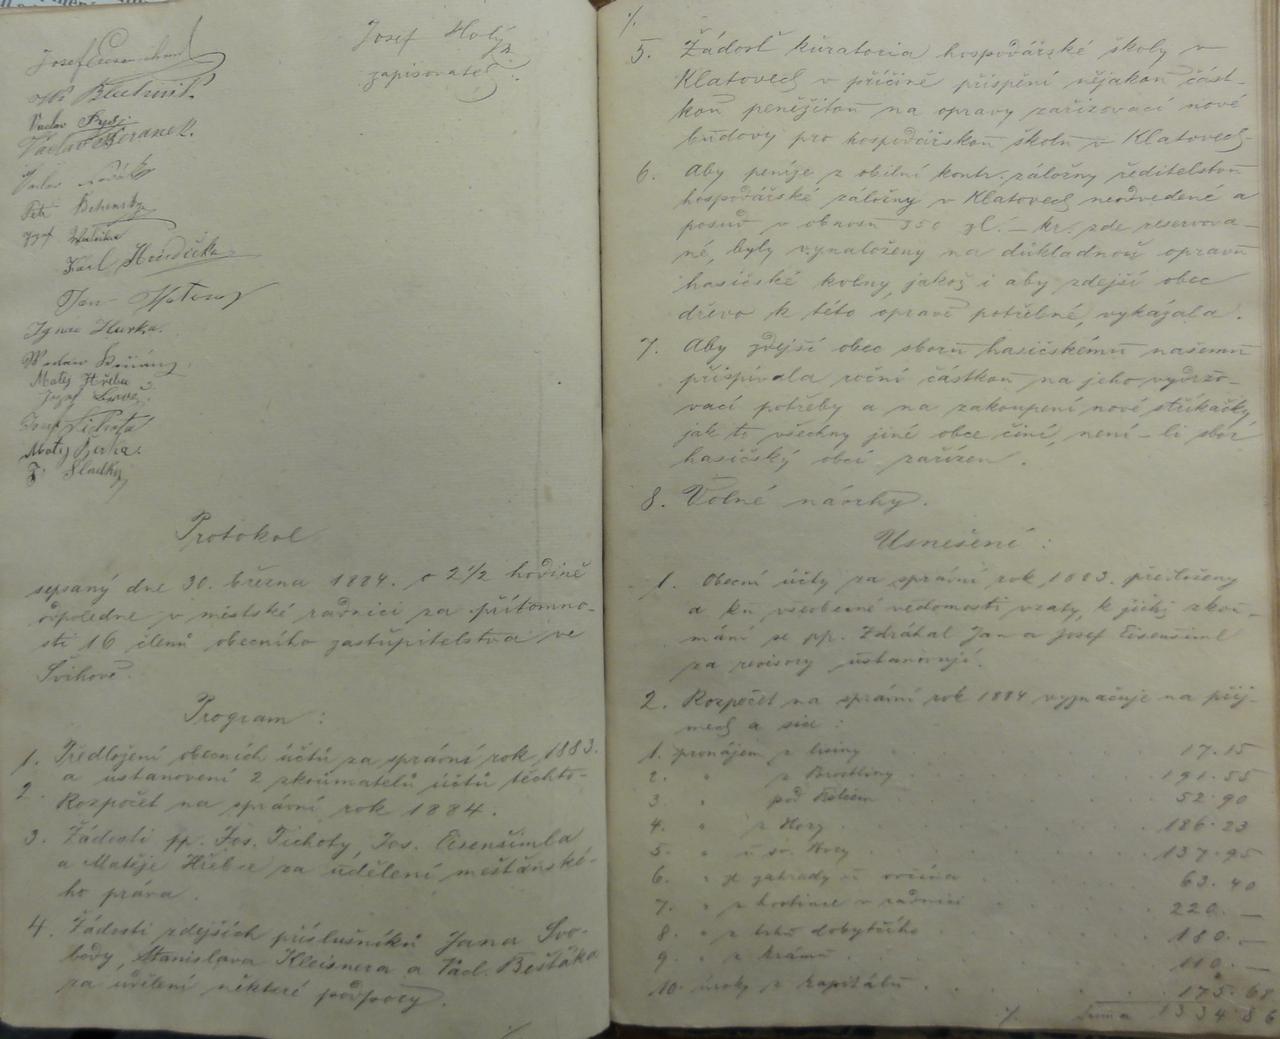 Josef Holý
zapisovatel
Václav Beránek.
Karl Houdička
Jan
Ignác Hurka.
Matěj Hřebec
Josef Tichota
Matěj
F. Sladký
Protokol
sepsaný dne 30. března 1884. o 2 1/2 hodině
odpoledne v městské radnici za přítomno-
sti 16 členů obecního zastupitelstva ve
Švihově.
Program :
1. Předložení obecních účtů za správní rok 1883.
a ustanovení 2 zkoumatelů účtů těchto-
2. Rozpočet na správní rok 1884.
3. Žádosti pp. Jos. Tichoty, Jos. Eisenšimla
a Matěje Hřebce za udělení měšťanské-
ho práva.
4. Žádosti zdejších příslušníků Jana Svo-
body, Stanislava Kleisnera a Václ. Bešťáka
za udílení některé podpory.
./.
./.
5. Žádosť kuratoria hospodářské školy v
Klatovech v příčině přispění nějakou část-
kou peněžitou na opravy zařizovací nové
budovy pro hospodářskou školu v Klatovech-
6. Aby peníze z obilní kontr. záložny ředitelstvu
hospodářské záložny v Klatovech neodvedené a
posud v obnosu 350 zl. – kr. zde reservova-
né, byly vynaloženy na důkladnou opravu
hasičské kolny, jakož i aby zdejší obec
dřevo k této opravě potřebné, vykázala.
7. Aby zdejší obec sboru hasičskému našemu
přispívala roční částkou na jeho vydržo-
vací potřeby a na zakoupení nové stříkačky
jak to všechny jiné obce činí, není-li sbor
hasičský obcí zařízen.
8. Volné návrhy.
Usnešení :
1. Obecní účty za správní rok 1883. předloženy
a ku všeobecné vědomosti vzaty, k jichž zkou-
mání se pp. Zdráhal Jan a Josef Eisenšiml
za revisory ustanovují.
2. Rozpočet na správní rok 1884 vyznačuje na příj-
mech a sice :
1. pronájem z 17.15
2. " z 191.55
3. " pod 52.90
4. " z Hory 186.23
5. " u sv. 137.95
6. " ze zahrady 63.40
7. " z hostince v radnici 220.–
8. " z trhů dobytčího 180.–
9. " z krámů 110.–
10. úroky z kapitálů 175.68
./. Suma 1334.86